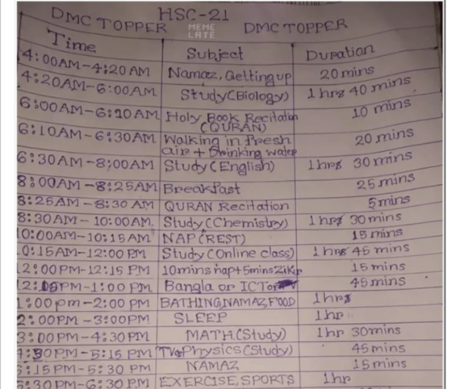 HSC-21
DMC TOPPER MEME LATE DMC TOPPER
Time Subject Duration
4:00AM-4:20AM Namaz, Getting up 20 mins
4:20AM-6:00AM Study(Biology) 1 hrs 40 mins
6:00AM-6:10AM Holy Book Recitation (QURAN) 10 mins
6:10AM-6:30AM Walking in fresh air + Drinking water 20 mins
6:30AM-8:00AM Study(English) 1 hrs 30 mins
8:00AM-8:25AM Breakfast 25 mins
8:25AM-8:30 AM QURAN Recitation 5 mins
8:30AM-10:00AM. Study(Chemistry) 1 hrs 30 mins
10:00AM-10:15AM NAP(REST) 15 mins
0:15AM-12:00 PM Study(Online class) 1 hrs 45 mins
12:00PM-12:15 PM 10mins nap+5mins Zikir 15 mins
12:15PM-1:00PM Bangla or ICT 45 mins
1:00pm-2:00 PM BATHING, NAMAZ, FOOD 1 hrs
2:00PM-3:00PM SLEEP 1 hr
3:00PM-4:30PM MATH.(Study) 1 hr 30 mins
4:30PM-5:15 PM Physics(Study) 45 mins
5:15 PM-5:30 PM NAMAZ 15 mins
5:30 PM-6:30 PM EXERCISE, SPORTS 1 hr